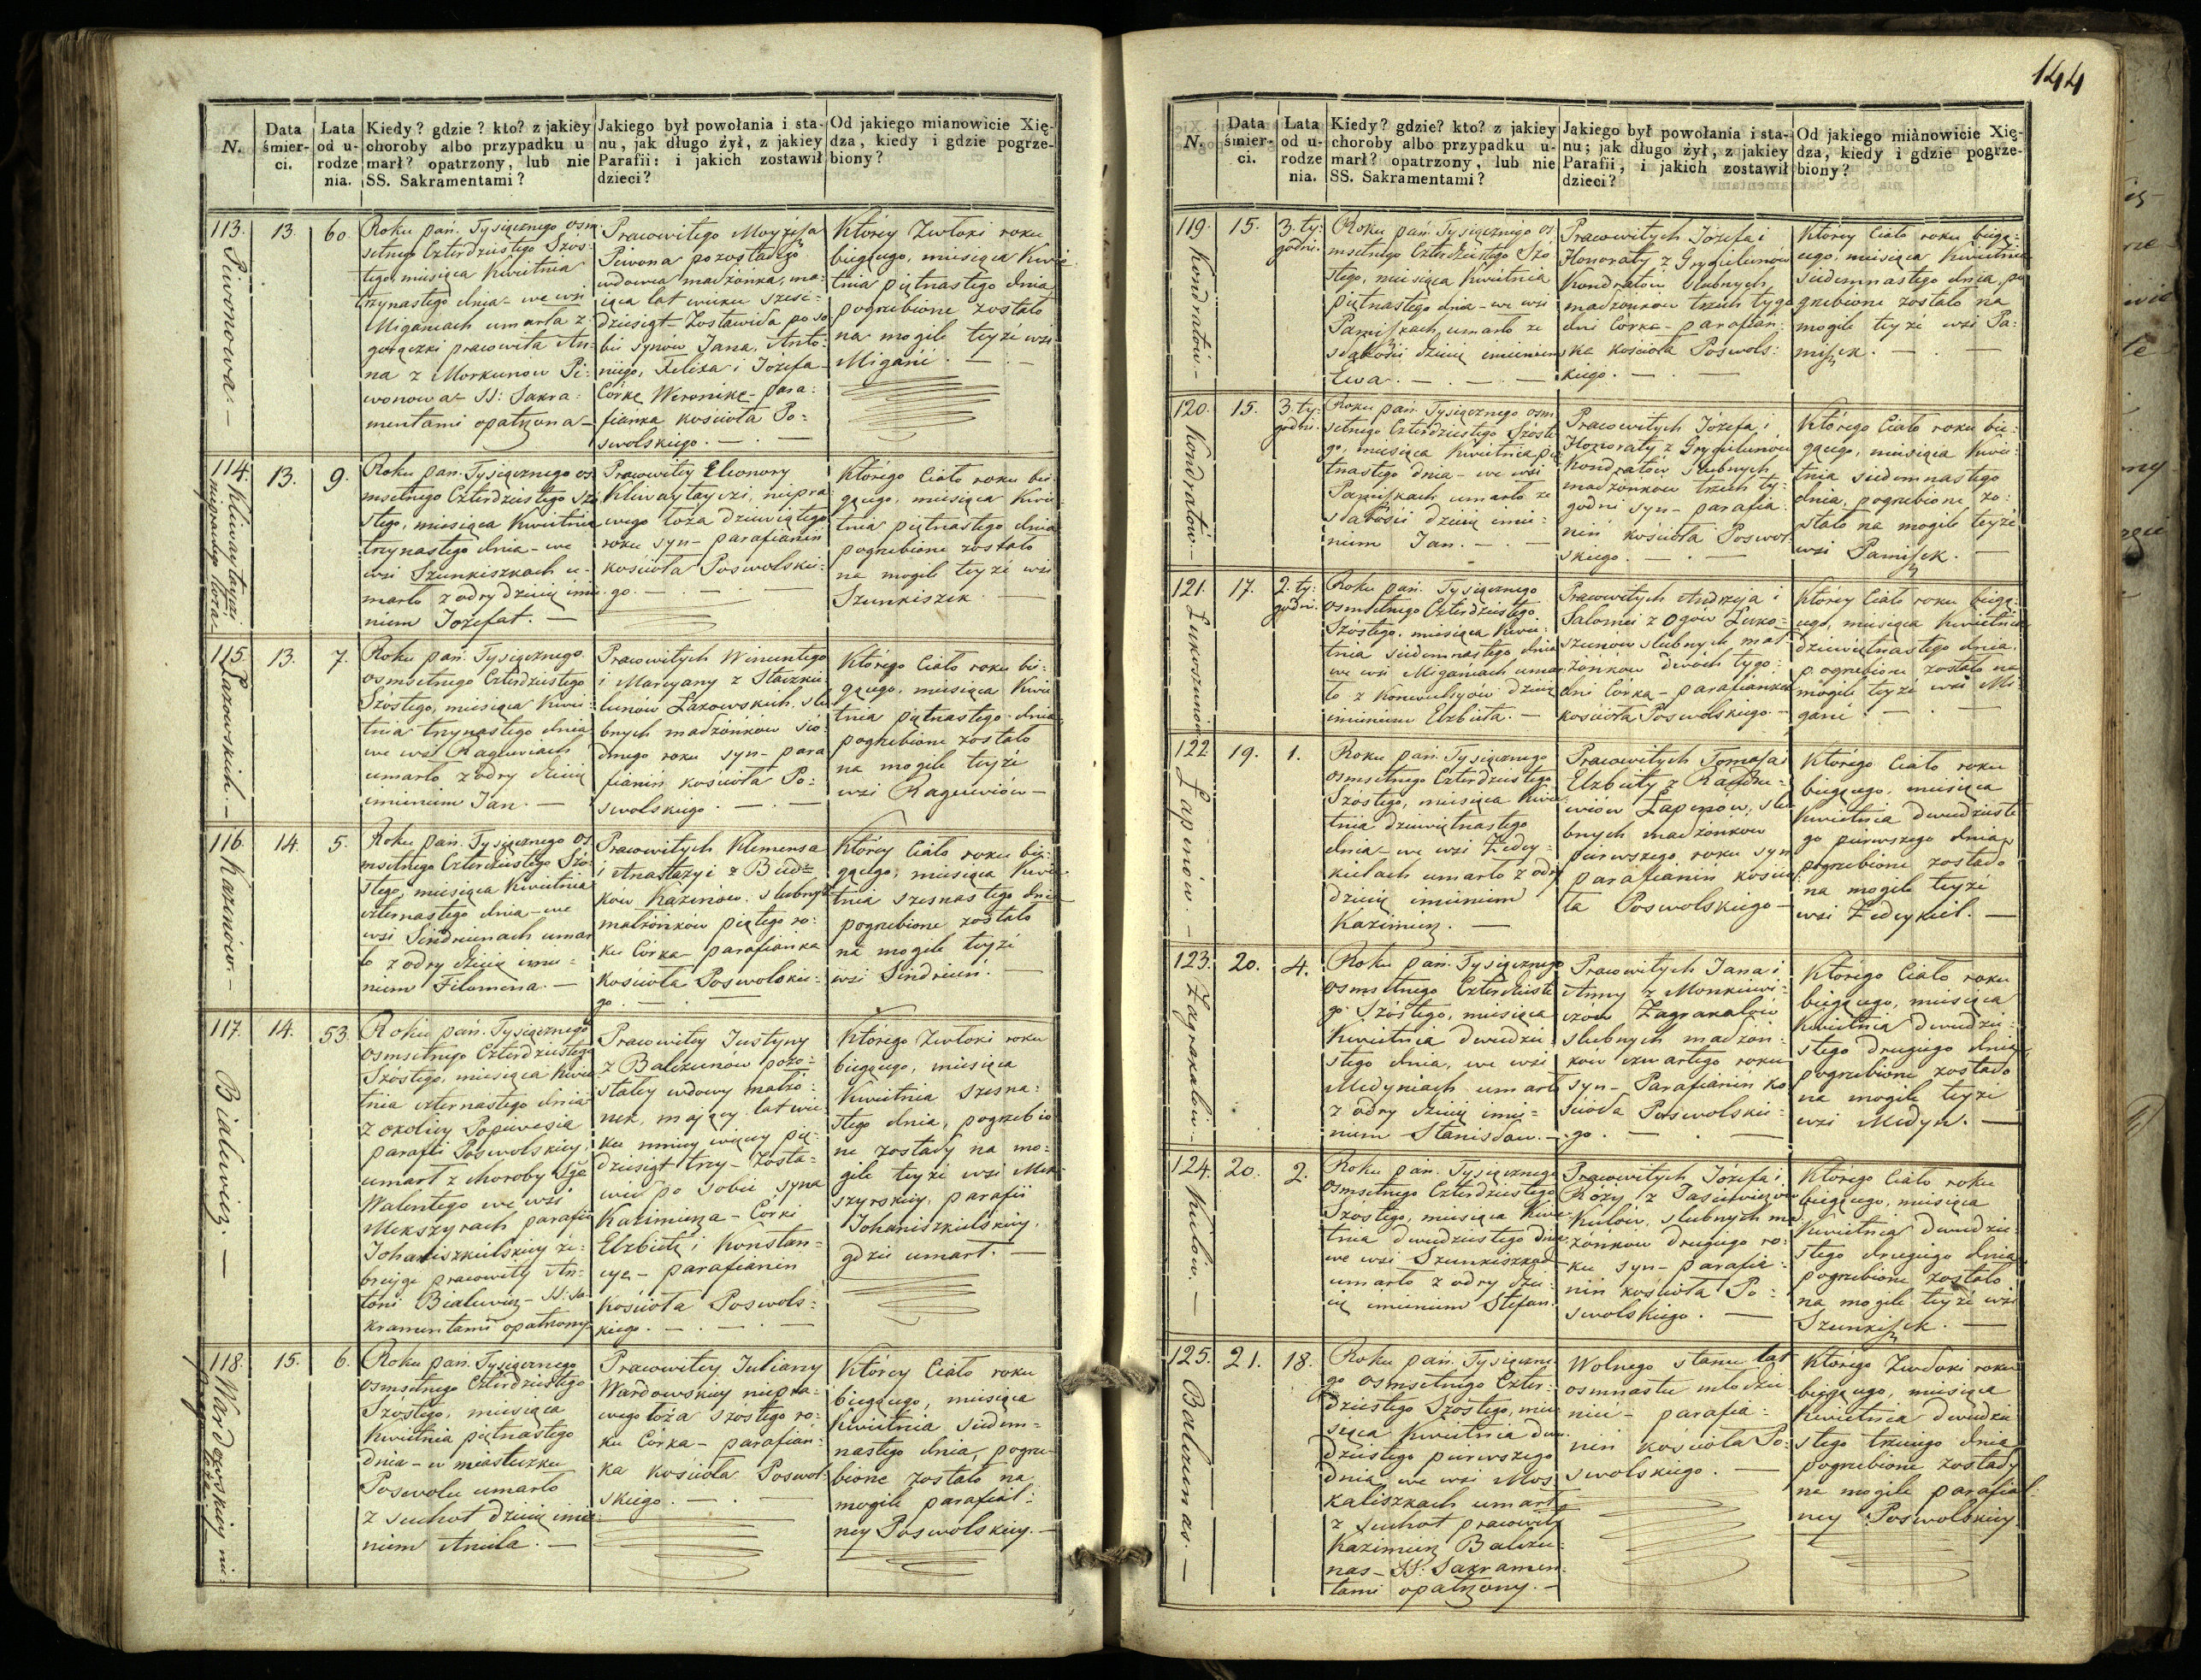 144
N.
Data śmier-ci.
Lata od u-rodze nia.
Kiedy? gdzie? kto? z jakiey
choroby albo przypadku u
marł? opatrzony, lub nie
SS. Sakramentami?
Jakiego był powołania i sta-
nu, jak długo żył, z jakiey
Parafii: i jakich zostawił
dzieci?
Od jakiego mianowicie Xię-
dza, kiedy i gdzie pogrze-
biony?
113.
Piwonowa. —
13.
60.
Roku pań. Tysiącznego osm
setnego Czterdziestego Szós:
tego, miesiąca Kwietnia
trzynastego dnia – we wsi
Miganiach umarła z
gorączki pracowita An:
na z Morkunow Pi:
wonowa – SS: Sakra:
mentami opatrzona –
Pracowitego Moyżesza
Piwona pozostałego
wdowca małżonka, ma:
iąca lat wieku sześć:
dziesiąt – Zostawiła po so
bie synow Jana, Anto:
niego, Felixa i Józefa –
Córkę Weronikę – para:
fianka kościoła Po:
swolskiego. —
Którey Zwłoki roku
biegącego, miesiąca Kwie
tnia piętnastego dnia
pogrzebione zostało
na mogile teyże wsi
Migańć. —
114.
Kliwaytayći
nieprawego łoża –
13.
9.
Roku pań. Tysiącznego os
msetnego Czterdziestego Szó
stego, miesiąca Kwietnia
trzynastego dnia – we
wsi Szunkiszkach u-
marło z odry dziecię imie
niem Jozefat. —
Pracowitey Eleonory
Kliwaytayći, niepra
wego łoża dziewiątego
roku syn – parafianin
kościoła Poswolskie:
go. —
Którego Ciało roku bie:
gącego, miesiąca Kwie
tnia piętnastego dnia
pogrzebione zostało
na mogile teyże wsi
Szunkiszek. —
115.
Łazowskich. —
13.
7.
Roku pań. Tysiącznego
osmsetnego Czterdziestego
Szóstego, miesiąca Kwie:
tnia trzynastego dnia
we wsi Ragiewiach
umarło z odry dziecię
imieniem Jan. —
Pracowitych Wincentego
i Maryanny z Staczkie
lunow Łazowskich, slu
bnych małżonkow sió:
dmego roku syn – para
fianin kościoła Po:
swolskiego. —
Którego Ciało roku bie:
gącego, miesiąca Kwie
tnia piętnastego dnia
pogrzebione zostało
na mogile teyże
wsi Ragiewiów —
116.
Kazinów. —
14.
5.
Roku pań. Tysiącznego os
msetnego Czterdziestego Szó:
stego, miesiąca Kwietnia
czternastego dnia – we
wsi Sindriunach umar
ło z odry dziecię imie:
niem Filomena. —
Pracowitych Klemensa
i Anastazyi z Bud=
ków Kazinów. slubnych
małżonków piątego ro:
ku Córka – parafianka
Kościoła Poswolskie:
go. —
Którey Ciało roku bie:
gącego, miesiąca Kwie
tnia szesnastego dnia
pogrzebione zostało
na mogile teyże
wsi Sindriuń. —
117.
Bialewicz. —
14.
53.
Roku pań. Tysiącznego
osmsetnego Czterdziestego
Szóstego, miesiąca Kwie
tnia czternastego dnia
z okolicy Popiwesia
parafii Poswolskiey,
umarł z choroby Sgo
Walentego we wsi
Mekszyrach parafii
Johaniszkielskiey że:
brzące pracowity An:
toni Bialewicz – SS: Sa
kramentami opatrzony
Pracowitey Justyny
z Balczunów pozo=
stałey wdowy małżo:
nek, mający lat wie
ku mniey więcey pię:
dziesiąt trzy – Zosta=
wił po sobie syna
Kazimierza – Córki
Elzbietę i Konstan=
cye – parafianin
Kościoła Poswols:
kiego. —
Którego Zwłoki roku
biegącego, miesiąca
Kwietnia szesna:
stego dnia, pogrzebio
ne zostały na mo:
gile teyże wsi Mek
szyrskiey, parafii
Johaniszkielskiey,
gdzie umarł. —
118.
Wardowskiey nie:
prawego łoża. —
15.
6.
Roku pań. Tysiącznego
osmsetnego Czterdziestego
Szóstego, miesiąca
Kwietnia piętnastego
dnia – w miasteczku
Poswolu umarło
z suchot dziecię imie
niem Aniela. —
Pracowitey Julianny
Wardowskiey niepra=
wego łoża szóstego ro:
ku Córka – parafian:
ka kościoła Poswol:
skiego. —
Którey Ciało roku
biegącego, miesiąca
Kwietnia siedm=
nastego dnia, pogrze
bione zostało na
mogile parafial:
ney Poswolskiey. —
N.
Data śmier-ci.
Lata od u-rodze nia.
Kiedy? gdzie? kto? z jakiey
choroby albo przypadku u-
marł? opatrzony, lub nie
SS. Sakramentami?
Jakiego był powołania i sta-
nu; jak długo żył, z jakiey
Parafii, i jakich zostawił
dzieci?
Od jakiego miànowicie Xię-
dza, kiedy i gdzie pogrze-
biony?
119.
Kondratów. —
15.
3. ty:
godni.
Roku pań. Tysiącznego os
msetnego Czterdziestego Szó
stego, miesiąca Kwietnia
piętnastego dnia – we wsi
Pamiszkach umarło ze
słabości dziecię imieniem
Ewa. —
Pracowitych Józefa i
Honoraty z Grygielunów
Kondratów slubnych
małżonkow trzech tygo
dni Córka – parafian:
ska kościoła Poswols:
kiego. —
Którey Ciało roku biegą:
cego, miesiąca Kwietnia
siedemnastego dnia, po
grzebione zostało na
mogile teyże wsi Pa:
miszek. —
120.
Kondratów. —
15.
3. ty:
godni.
Roku pań. Tysiącznego osm
setnego Czterdziestego Szóste
go, miesiąca Kwietnia pię
tnastego dnia – we wsi
Pamiszkach umarło ze
słabości dziecię imie:
niem Jan. —
Pracowitych Józefa i
Honoraty z Grygielunów
Kondratów slubnych
małżonkow trzech ty:
godni syn – parafia:
nin kościoła Poswol
skiego. —
Którego Ciało roku bie:
gącego, miesiąca Kwie:
tnia siedemnastego
dnia, pogrzebione zo:
stało na mogile teyże
wsi Pamiszek. —
121.
Łukoszunów
17.
2. ty:
godni.
Roku pań. Tysiącznego
osmsetnego Czterdziestego
Szóstego, miesiąca Kwie:
tnia siedemnastego dnia
we wsi Miganiach umar
ło z Konwulsyów dziecię
imieniem Elzbieta. —
Pracowitych Andrzeja i
Salomei z Ogów Łuko=
szunów slubnych mał
żonkow dwóch tygo:
dni Córka – parafianka
kościoła Poswolskiego —
Którey Ciało roku biegą:
cego, miesiąca Kwietnia
dziewiętnastego dnia,
pogrzebione zostało na
mogile teyże wsi Mi:
gańć. —
122.
Łapinów. —
19.
1.
Roku pań. Tysiącznego
osmsetnego Czterdziestego
Szóstego, miesiąca Kwie
tnia dziewiętnastego
dnia – we wsi Żedey:
kielach umarło z odry
dziecię imieniem
Kazimierz. —
Pracowitych Tomasza i
Elzbiety z
Łapinów, slu
bnych małżonkow
pierwszego roku syn
parafianin kościo
ła Poswolskiego —
Którego Ciało roku
biegącego, miesiąca
Kwietnia dwudzieste
go pierwszego dnia
pogrzebione zostało
na mogile teyże
wsi Żedeykiel. —
123.
Zagrakalów —
20.
4.
Roku pań. Tysiącznego
osmsetnego Czterdzieste
go Szóstego, miesiąca
Kwietnia dwudzie
stego dnia, we wsi
Medyniach umarło
z odry dziecię imie=
niem Stanisław. —
Pracowitych Jana i
Anny z Monkiewi:
czow Zagrakalów
slubnych małżon:
kow czwartego roku
syn – Parafianin Ko
ścioła Poswolskie:
go. —
Którego Ciało roku
biegącego, miesiąca
Kwietnia dwudzie:
stego drugiego dnia
pogrzebione zostało
na mogile teyże
wsi Medyń. —
124.
Kulów. —
20.
2.
Roku pań. Tysiącznego
osmsetnego Czterdziestego
Szóstego, miesiąca Kwie
tnia dwudziestego dnia
we wsi Szunkiszkach
umarło z odry dzie:
cię imieniem Stefan.
Pracowitych Józefa i
Rozy z Jasiewiczow
Kulów, slubnych ma
żonkow drugiego ro:
ku syn – parafia:
nin kościoła Po:
swolskiego. —
Którego Ciało roku
biegącego, miesiąca
Kwietnia dwudzie:
stego drugiego dnia
pogrzebione zostało
na mogile teyże wsi
Szunkiszek. —
125.
Balczunas. —
21.
18.
Roku pań. Tysiączne
go osmsetnego Czter:
dziestego Szóstego, mie
siąca Kwietnia dwu
dziestego pierwszego
dnia we wsi Mos
kaliszkach umarł
z suchot pracowity
Kazimierz Balczu:
nas – SS: Sakramen
tami opatrzony. —
Wolnego stanu lat
osmnastu młodzie
niec – parafia:
nin kościoła Po:
swolskiego. —
Którego Zwłoki roku
biegącego, miesiąca
Kwietnia dwudzie
stego trzeciego dnia
pogrzebione zostały
na mogile parafial:
ney Poswolskiey.